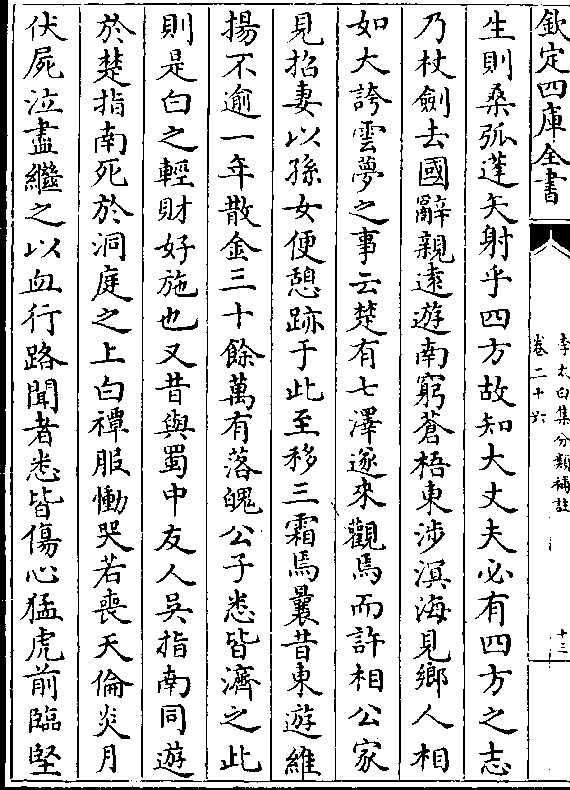 欽定四庫全書
李太白集分類補註
卷二十六
十三
生則桑弧蓬矢射乎四方故知大丈夫必有四方之志
乃杖劍去國辭親遠遊南窮蒼梧東涉溟海見鄉人相
如大誇雲夢之事云楚有七澤遂來觀焉而許相公家
見招妻以孫女便憩跡于此至移三霜焉曩昔東遊維
揚不逾一年散金三十餘萬有落魄公子悉皆濟之此
則是白之輕財好施也又昔與蜀中友人吳指南同遊
於楚指南死於洞庭之上白禫服慟哭若喪天倫炎月
伏屍泣盡繼之以血行路聞者悉皆傷心猛虎前臨堅